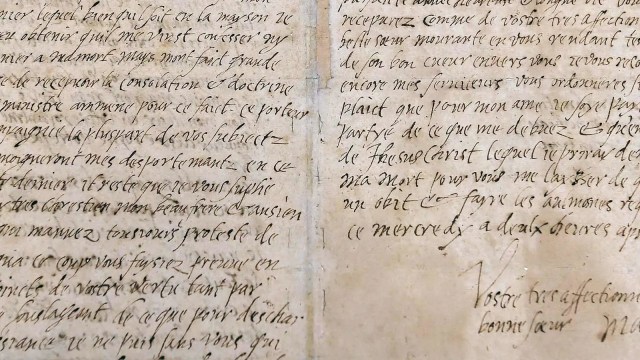 nier lequel bienquil soit en la mayson ie
eu obtenir quil me vinst conesser ny
nier a ma mort mays mont fait grande
de recepuoir la consolation & doctrine
ministre ammene pour ce fait ce porteur
paignie la pluspart de vos subiectz
moigneront mes desportemantz en ce
t derniere il reste que ie vous suplie
tres crestien mon beaufrere & ansien
qui mauuez tousiours proteste de
qua ce coup vous faysiez preuue en
oincts de vostre vertu tant par
souslageant de ce que pour deschar
ie ne puis sans vous qui
receurez comme de vostre tres affection
belle sœur mourante en vous rendant te
de son bon cueur enuers vous ie vous reco
encore mes seruiteurs vous ordonneres si
plaict que pour mon ame ie soye pay
partye de ce que me debuez & que
de Jhesus Christ lequel ie priray de
ma mort pour vous me laysser de
un obit & fayre les aumosnes req
ce mercredy a deulx heures apr
Vostre tres affectionn
bonne sœur Ma